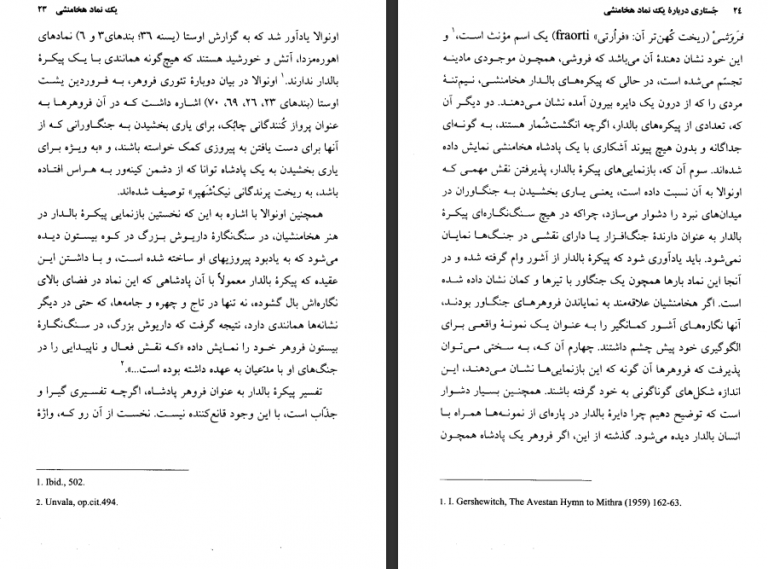 یک نماد هخامنشی ۲۳
اونوالا یادآور شد که به گزارش اوستا (یسنه ۳۶؛ بندهای۳ و ۶) نمادهای
اهوره‌مزدا، آتش و خورشید هستند که هیچ‌گونه همانندی با یک پیکرهٔ
بالدار ندارند.۱ اونوالا در بیان دوبارهٔ تئوری فروهر، به فروردین یشت
اوستا (بندهای ۲۳، ۲۶، ۶۹، ۷۰) اشاره داشت که در آن فروهرها به
عنوان پرواز کُنندگانی چابُک، برای یاری بخشیدن به جنگاورانی که از
آنها برای دست یافتن به پیروزی کمک خواسته باشند، و «به ویژه برای
یاری بخشیدن به یک پادشاه توانا که از دشمن کینه‌ور به هراس افتاده
باشد، به ریخت پرندگانی نیک‌شَهپر» توصیف شده‌اند.
همچنین اونوالا با اشاره به این که نخستین بازنمایی پیکرهٔ بالدار در
هنر هخامنشیان، در سنگ‌نگارهٔ داریوش بزرگ در کوه بیستون دیده
می‌شود که به یادبود پیروزیهای او ساخته شده است، و با داشتن این
عقیده که پیکرهٔ بالدار معمولاً با آن پادشاهی که این نماد در فضای بالای
نگاره‌اش بال گشوده، نه تنها در تاج و چهره و جامه‌ها، که حتی در دیگر
نشانه‌ها همانندی دارد، نتیجه گرفت که داریوش بزرگ، در سنگ‌نگارهٔ
بیستون فروهر خود را نمایش داده «کـه نقـش فعـال و ناپیدایی را در
جنگ‌های او با مدّعیان به عهده داشته بوده است...».۲
تفسیر پیکرهٔ بالدار به عنوان فروهر پادشاه، اگرچـه تفسیری گیرا و
جذّاب است، با این وجود قانع‌کننده نیست. نخست از آن رو که، واژهٔ
1. Ibid., 502.
2. Unvala, op.cit.494.
۲۴ جُستاری دربارهٔ یک نماد هخامنشی
فرَوَشیْ (ریخت کُهن‌تر آن: «فراُرتی» fraorti) یک اسم مؤنث است،۱ و
این خود نشان دهندهٔ آن می‌باشد که فروشی، همچون موجودی مادینه
تجسّم می‌شده است، در حالی که پیکره‌های بالـدار هخامنشی، نیم‌تنهٔ
مردی را که از درون یک دایره بیرون آمده نشان می‌دهنـد. دو دیگر آن
که، تعدادی از پیکره‌های بالدار، اگرچه انگشت‌شُمار هستند، به گونه‌ای
جداگانه و بدون هیچ پیوند آشکاری با یک پادشاه هخامنشی نمایش داده
شده‌اند. سوم آن که، بازنمایی‌های پیکرهٔ بالدار، پذیرفتن نقش مهمـی که
اونوالا به آن نسبت داده است، یعنی یاری بخشیدن به جنگاوران در
میدان‌های نبرد را دشوار می‌سازد، چراکه در هیچ سنگ‌نگاره‌ای پیکرهٔ
بالدار به عنوان دارندهٔ جنگ‌افزار یا دارای نقشی در جنگ‌ها نمایان
نمی‌شود. باید یادآوری شود که پیکرهٔ بالدار از آشور وام گرفته شده و در
آنجا این نماد بارها همچون یک جنگاور با تیرها و کمان نشان داده شده
است. اگر هخامنشیان علاقه‌مند به نمایاندن فروهرهای جنگـاور بودنـد،
آنها نگاره‌های آشور کمانگیر را به عنوان یک نمونهٔ واقعی برای
الگوگیری خود پیش چشم داشتند. چهارم آن کـه، به سختی می‌توان
پذیرفت که فروهرها آن گونه که این بازنمایی‌ها نشان می‌دهنـد، ایـن
اندازه شکل‌های گوناگونی به خود گرفته باشند. همچنین بسیار دشوار
است که توضیح دهیم چرا دایرهٔ بالدار در پاره‌ای از نمونه‌ها همراه با
انسان بالدار دیده می‌شود. گذشته از این، اگر فروهر یک پادشاه همچون
1. I. Gershewitch, The Avestan Hymn to Mithra (1959) 162-63.